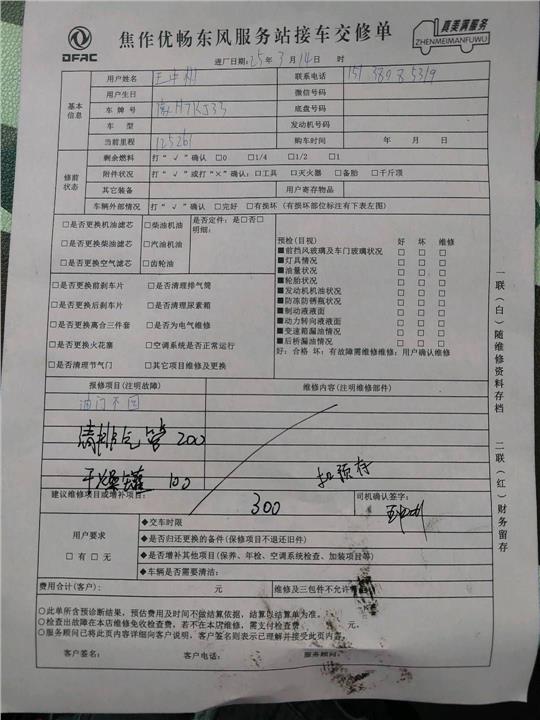 DFAC
焦作优畅东风服务站接车交修单
真美满服务
ZHENMEIMANFUWU
进厂日期：25年3月14日 时
基本信息
用户姓名 联系电话
用户生日 微信号码
车牌号 底盘号码
车型 发动机号码
当前里程 125261 购车时间 年 月 日
修前状态
剩余燃料 打“√”确认 □0 □1/4 □1/2 □1
附件状况 打“√”或打“×”确认：□工具 □灭火器 □备胎 □千斤顶
其它装备 用户寄存物品
车辆外部情况 打“√”确认 □完好 □有损坏（有损坏部位标注有下表左图）
□是否更换机油滤芯 □柴油机油 是否定件：是□否□
□是否更换柴油滤芯 □汽油机油 明细：
□是否更换空气滤芯 □齿轮油
□是否更换前刹车片 □是否清理排气筒
□是否更换后刹车片 □是否清理尿素箱
□是否更换离合三件套 □是否为电气维修
□是否更换火花塞 □空调系统是否正常运行
□是否清理节气门 □其它项目维修及更换
预检(目视) 好 坏 维修
■前挡风玻璃及车门玻璃状况 □ □ □
■灯具情况 □ □ □
■油量状况 □ □ □
■轮胎状况 □ □ □
■发动机机油状况 □ □ □
■防冻防锈瓶状况 □ □ □
■制动液液面 □ □ □
■动力转向液液面 □ □ □
■变速箱漏油情况 □ □ □
■后桥漏油情况 □ □ □
好：合格 坏：有故障需维修维修：用户确认维修
报修项目(注明故障) 维修内容(注明维修部件)
油门不回
清排气管 200
干燥罐 100
扣预存
建议维修项目或增补项目： 300 司机确认签字：
用户要求
□有 □无
◆交车时限
◆是否归还更换的备件(保修项目不退还旧件)
◆是否增补其他项目(保养、年检、空调系统检查、加装项目等)
◆车辆是否需要清洁：
费用合计(客户)： 元 维修及三包件不允许
○此单所含预诊断结果，预估费用及时间不做结算依据，结算以结算单为准。
○检查出故障在本店维修免收检查费，若不在本店维修，需支付检查费 元。
○服务顾问已将此页内容详细向客户说明，客户签名则表示已理解并接受此页内容。
客户签名： 客户电话： 服务顾问：
一联(白)随维修资料存档
二联(红)财务留存